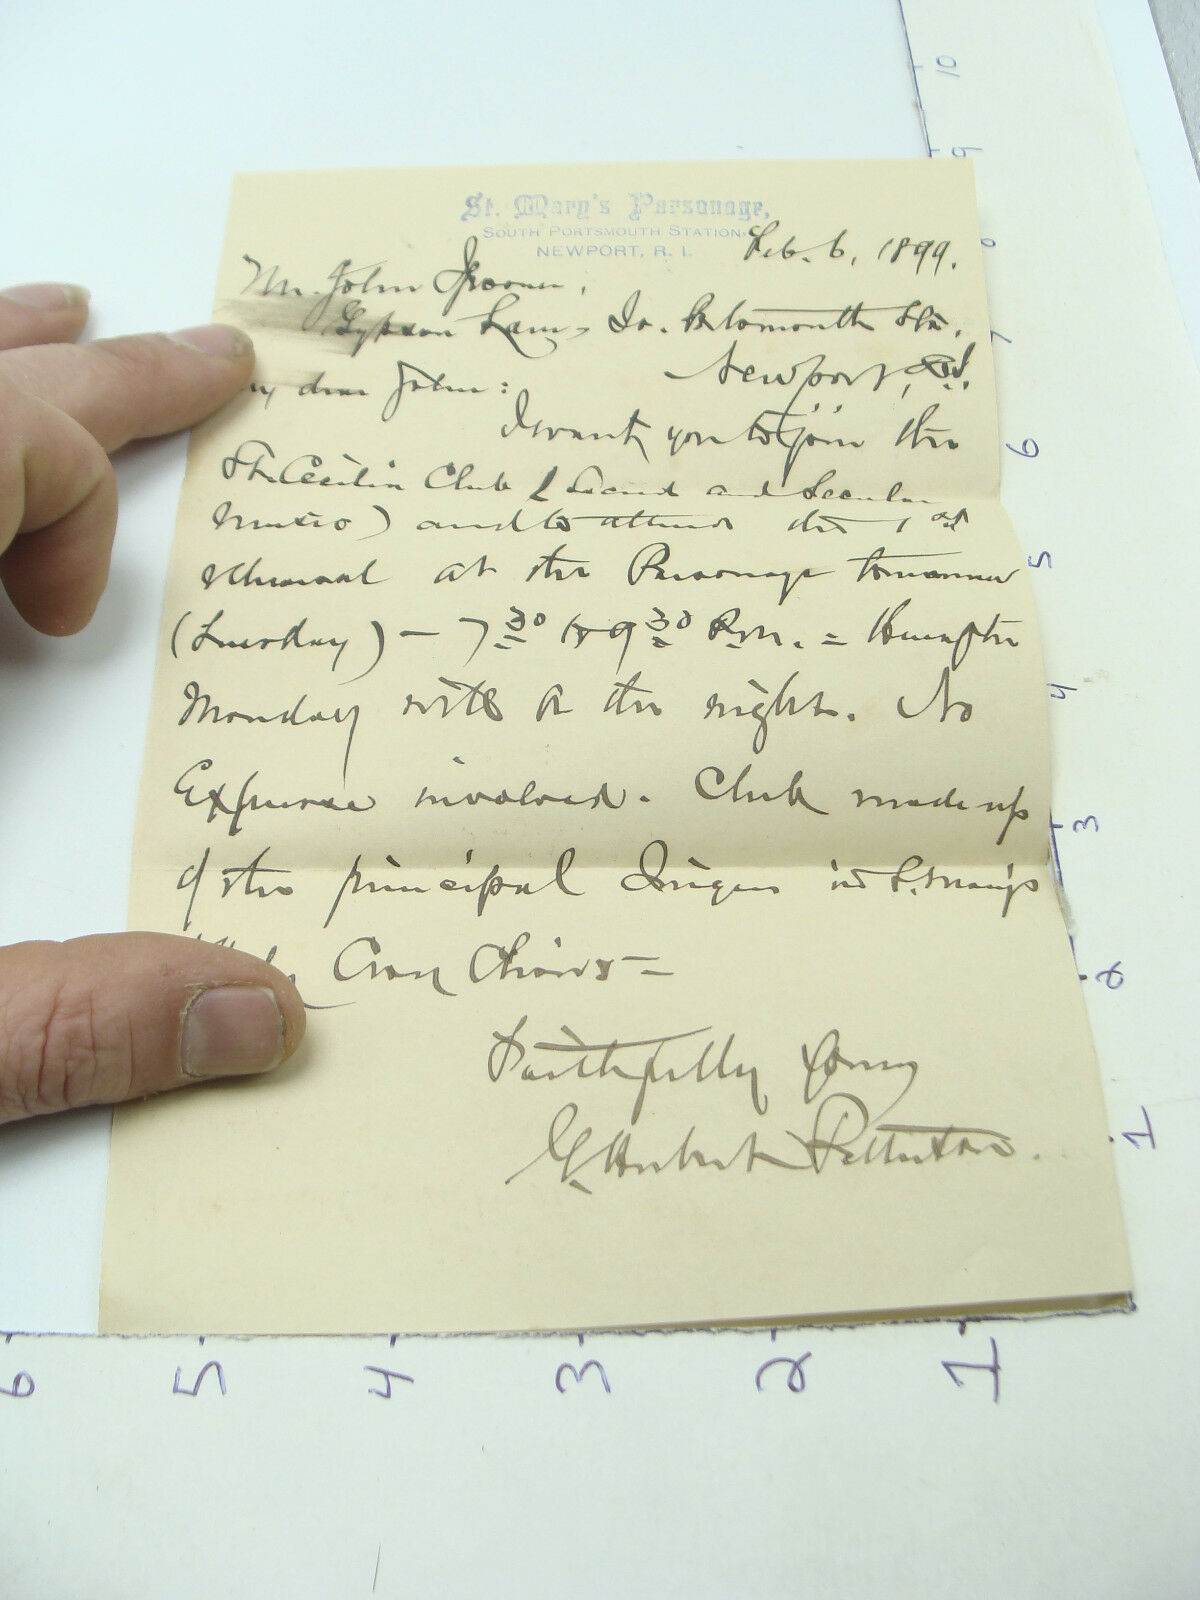 St. Mary's Parsonage,
SOUTH PORTSMOUTH STATION
NEWPORT, R. I.
Feb. 6, 1899.
Mr. John
So. Portsmouth Sta.
Newport, R.I.
My dear John:
I want you to join the
St. Cecilia Club (Sacred and Secular
Music) and to attend the 1st
rehearsal at the Parsonage tomorrow
(Tuesday) – 7 30 to 9 30 P.M. = Hereafter
Monday will be the night. No
Expense involved. Club made up
of the principal Singers in St. Mary's
Holy Cross Choirs =
Faithfully yours
Herbert Patterson.
10
9
8
7
6
5
4
3
2
1
6 5 4 3 2 1